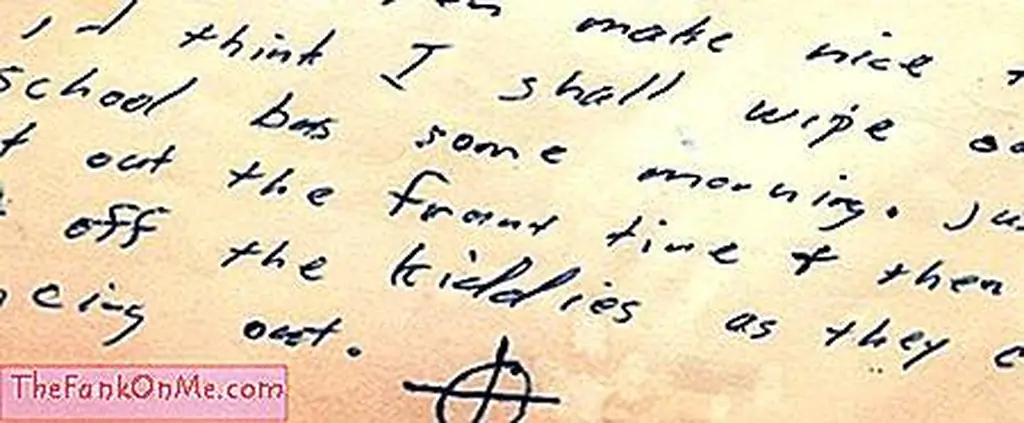 make nice
think I shall wipe
school bus some morning. Jus
out the frount tire + then
off the kiddies as they c
cing out.
TheFankOnMe.com